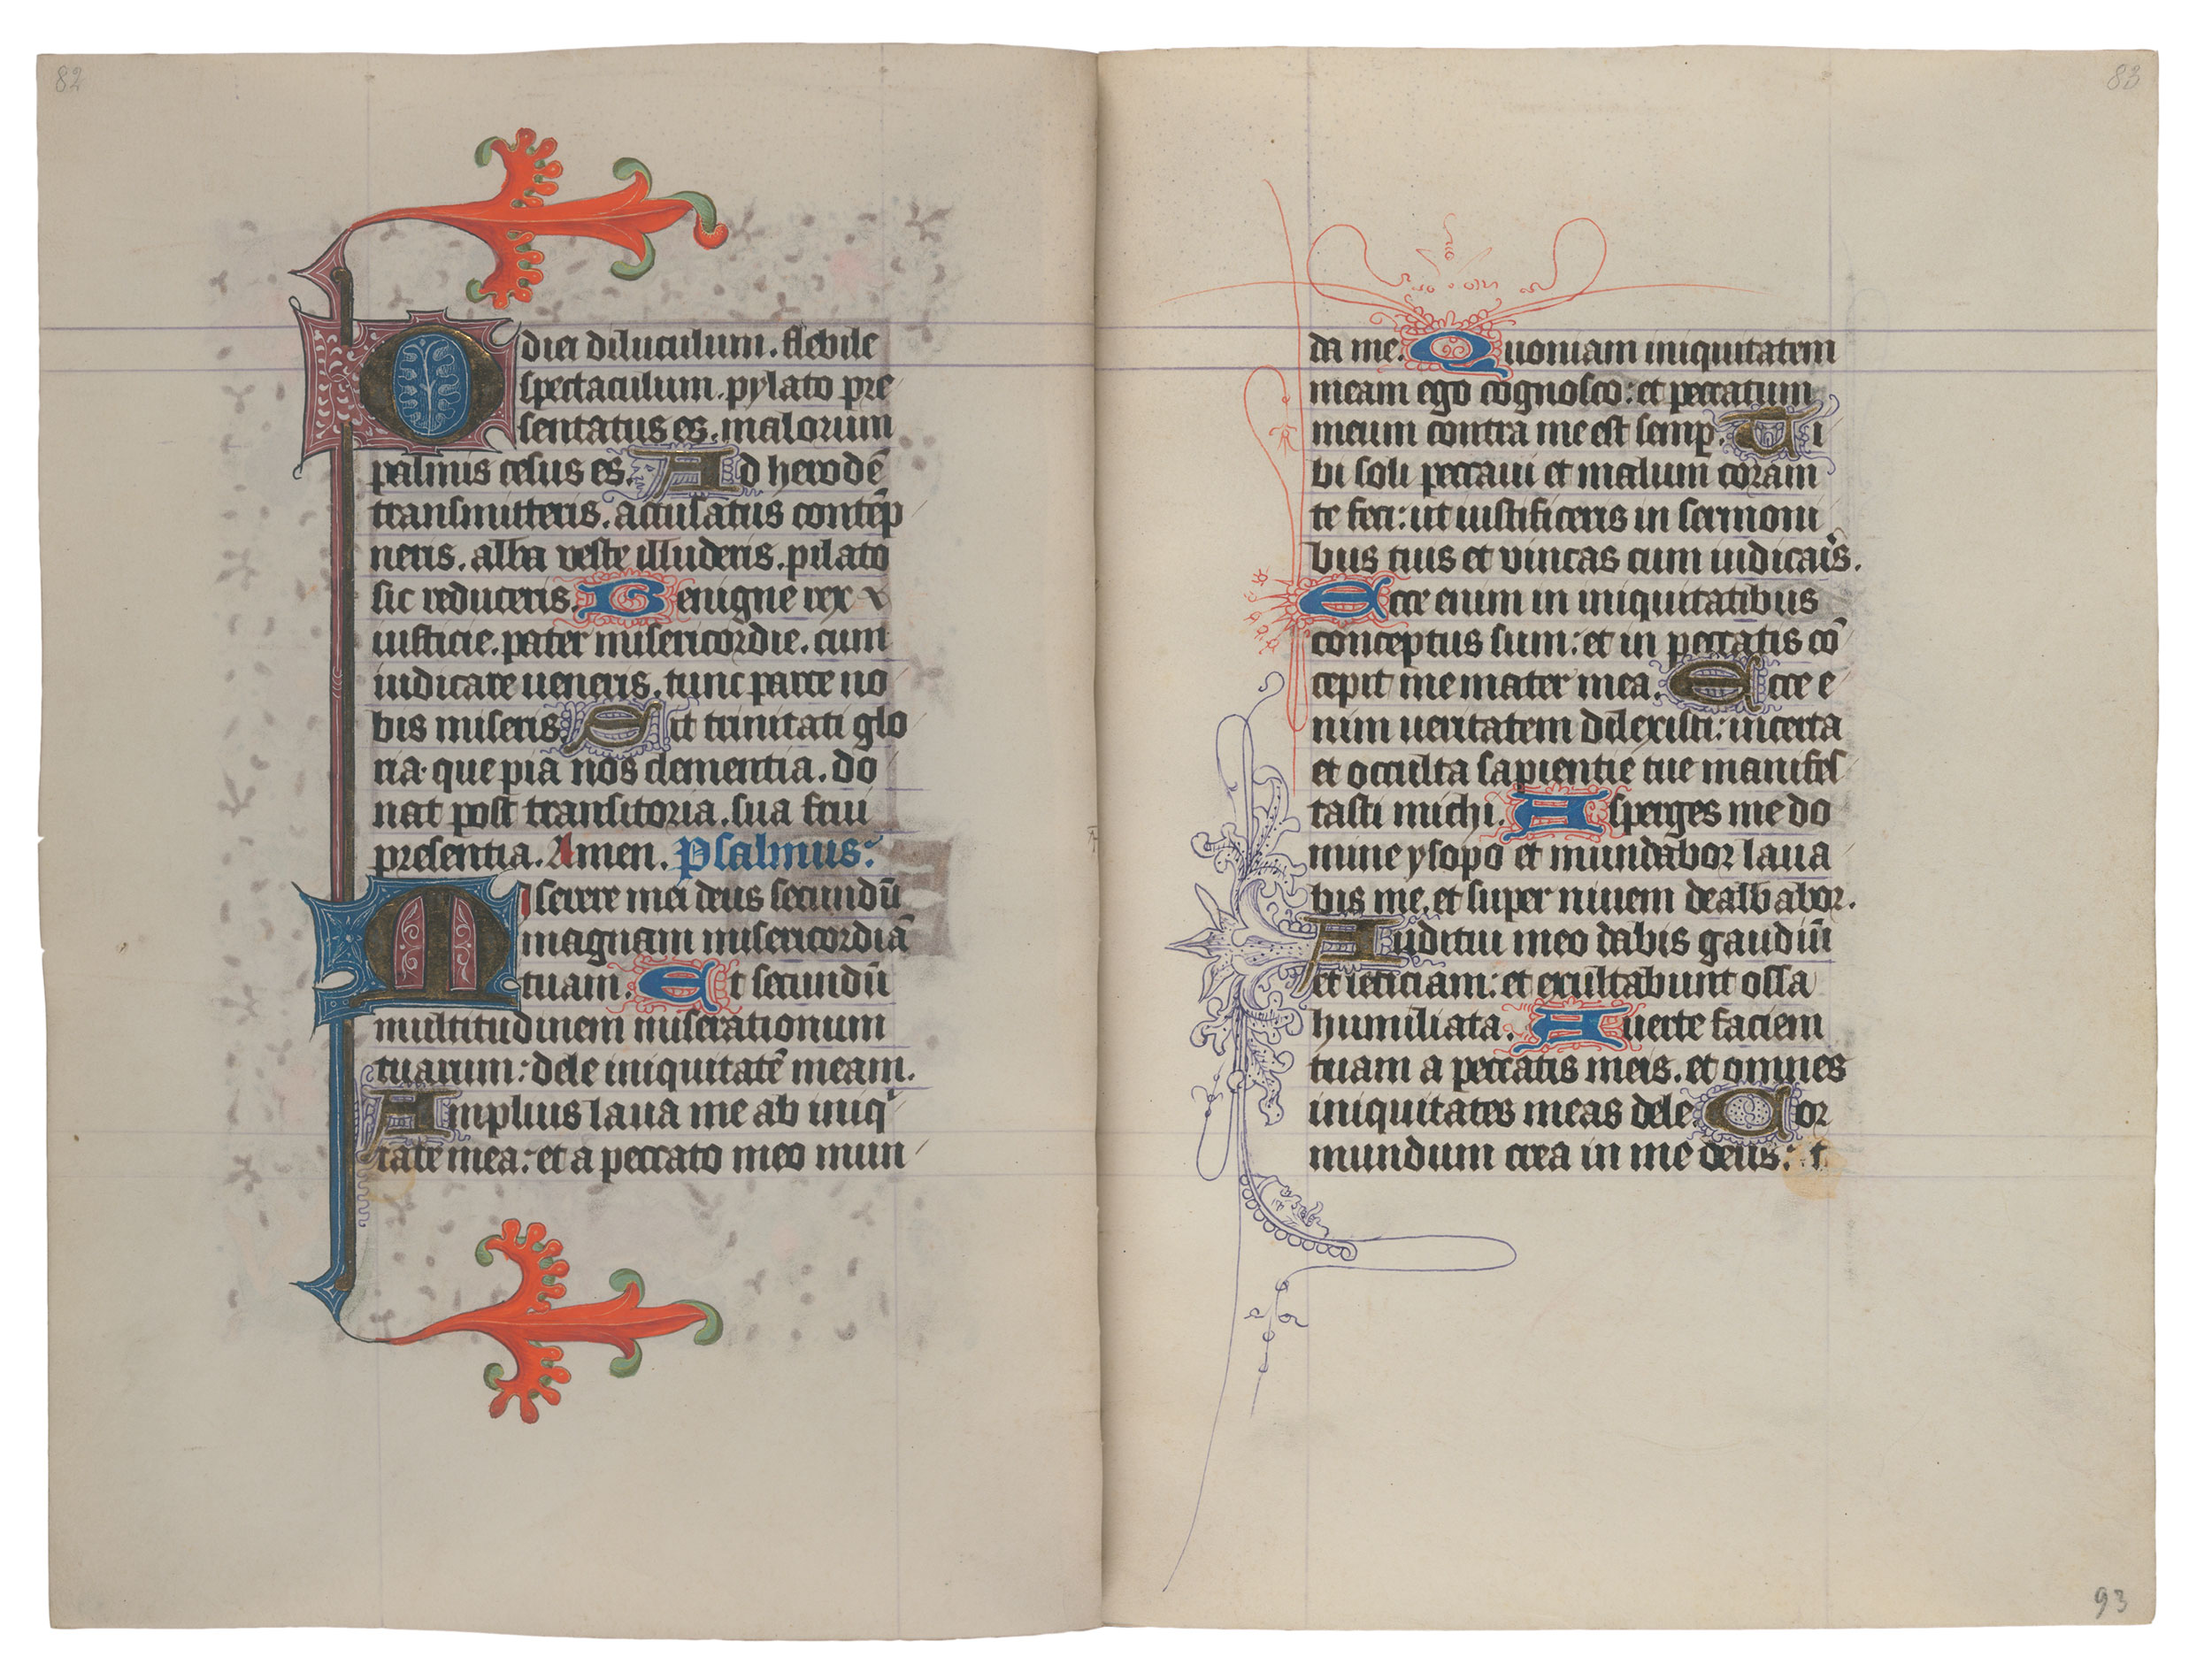 82
O diei diluculum. flebile
spectaculum. pylato pre
sentatus es. malorum
palmis cesus es. Ad herodē
transmitteris. accusatus contēp
neris. alba veste illuderis. pilato
sic reduceris. Benigne rex
iusticie. pater misericordie. cum
iudicare ueneris. tunc parce no
bis miseris. Sit trinitati glo
ria. que pia nos clementia. do
nat post transitoria. sua frui
presentia. Amen. Psalmus:
Miserere mei deus secundū
magnam misericordiā
tuam. Et secundū
multitudinem miserationum
tuarum: dele iniquitatē meam.
Amplius laua me ab iniq
tate mea: et a peccato meo mun
83
da me. Quoniam iniquitatem
meam ego cognosco: et peccatum
meum contra me est semp. Ti
bi soli peccaui et malum coram
te feci: ut iustificeris in sermoni
bus tuis et vincas cum iudicaris.
Ecce enim in iniquitatibus
conceptus sum: et in peccatis cō
cepit me mater mea. Ecce e
nim ueritatem dilexisti: incerta
et occulta sapientie tue manifes
tasti michi. Asperges me do
mine ysopo et mundabor laua
bis me, et super niuem dealbabor.
Auditui meo dabis gaudiū
et leticiam: et exultabunt ossa
humiliata. Auerte faciem
tuam a peccatis meis. et omnes
iniquitates meas dele. Cor
mundum crea in me deus:
93